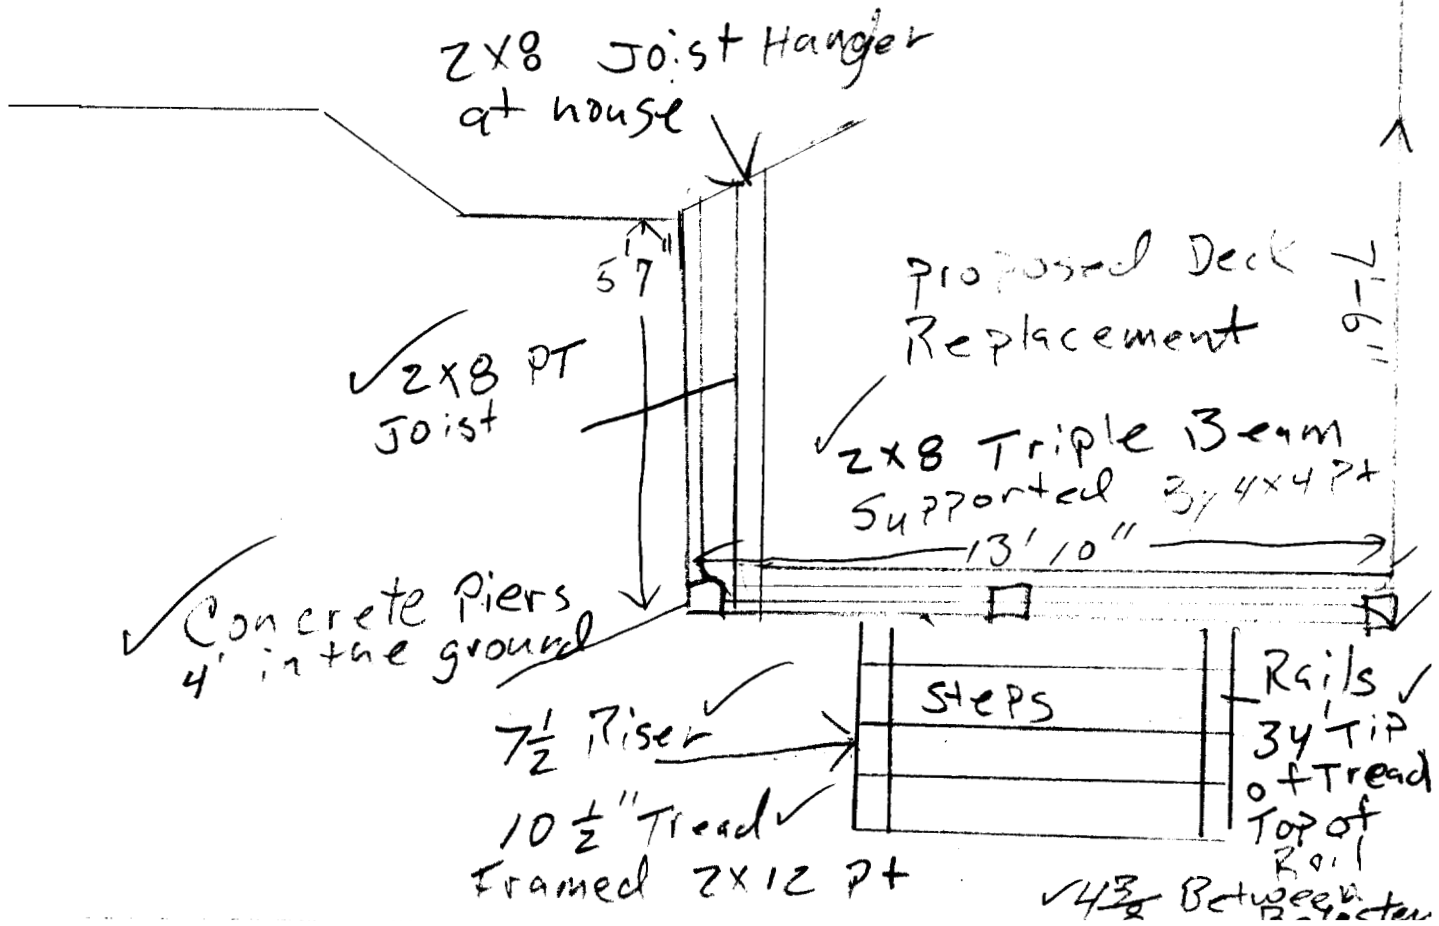 2x8 Joist Hanger
at house
5'7"
Proposed Deck
Replacement
7'-6"
2x8 PT
Joist
2x8 Triple Beam
Supported By 4x4 Pt
13' 10"
Concrete Piers
4' in the ground
Steps
7 1/2 Riser
10 1/2" Tread
Framed 2x12 Pt
Rails
34" Tip
of Tread
Top of
Rail
4 3/8 Between